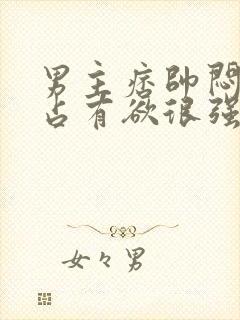 男主痞帅闷
占有欲很强
女々男